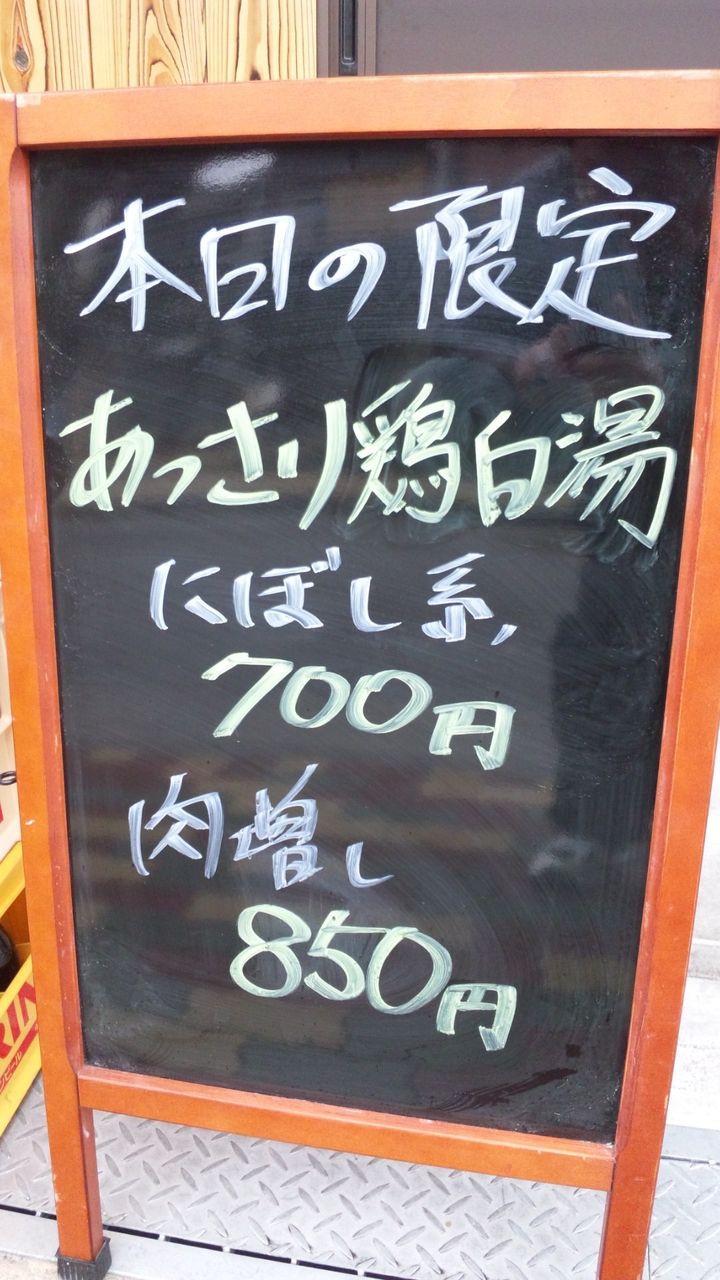 本日の限定
あっさり鶏白湯
にぼし系
700円
肉増し
850円
RIN